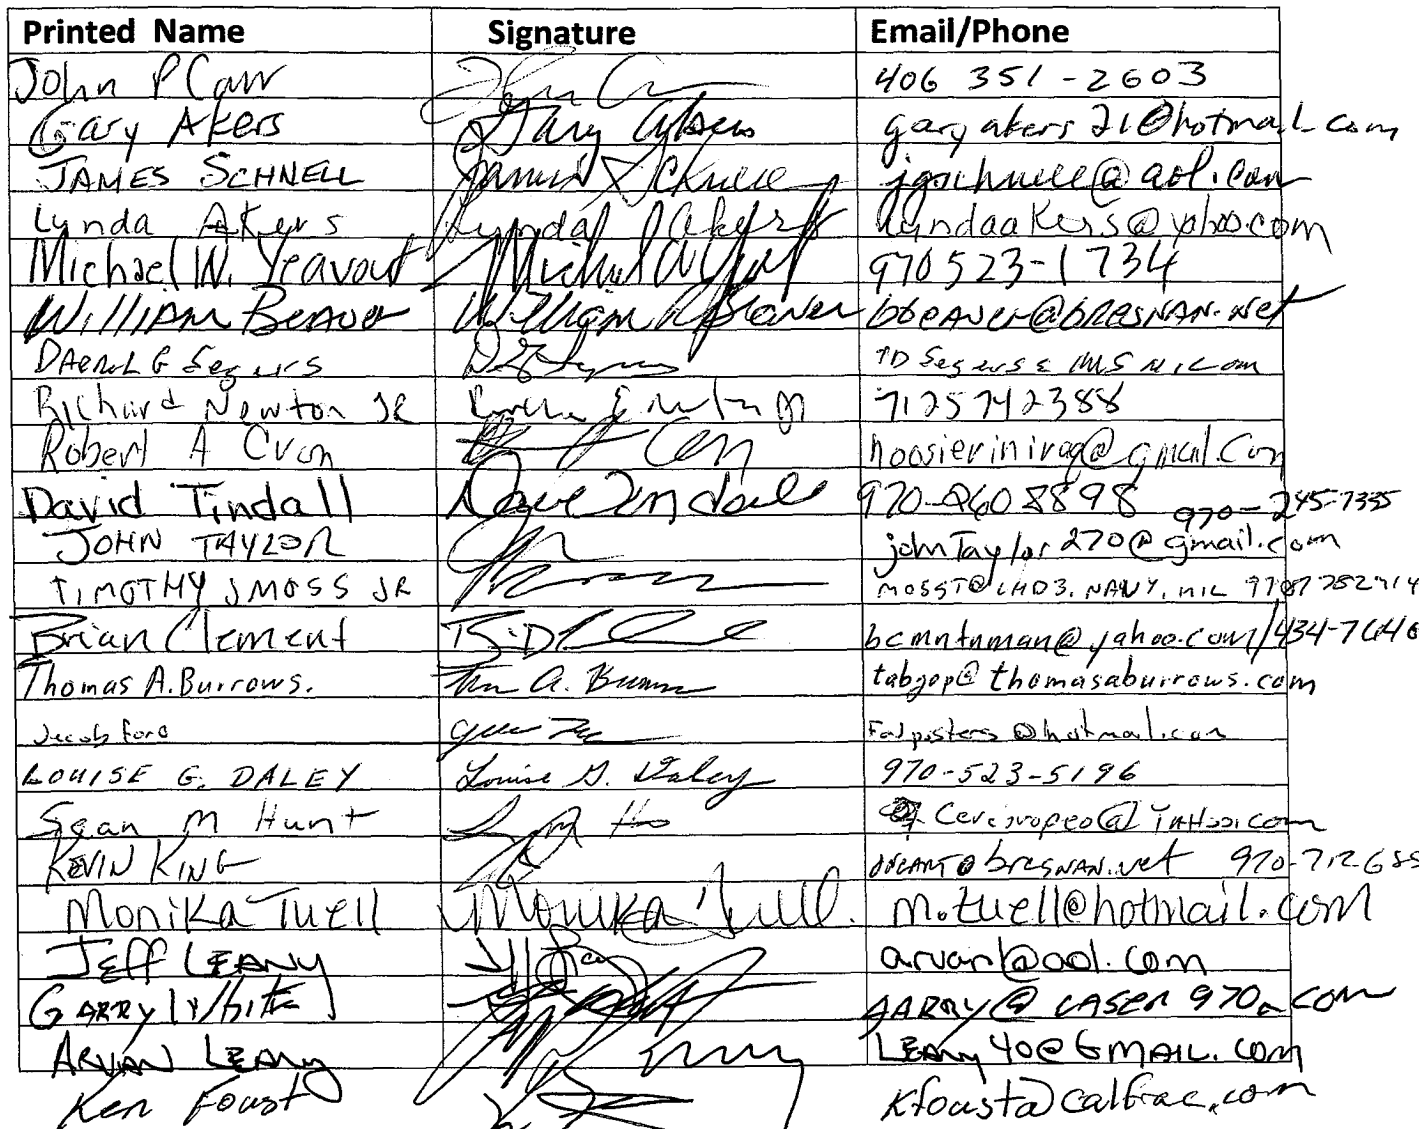 Printed Name Signature Email/Phone
John P Carr John C 406 351-2603
Gary Akers Gary Akers garyakers21@hotmail.com
JAMES SCHNELL James Schnell jgschnell@aol.com
Lynda Akers Lynda Akers lyndaakers@yahoo.com
Michael W. Yeavout 970 523-1734
WilliAM BeAver William R Beaver bbeAver@bresnan.net
G Segers
Richard Newton JR 7125742388
Robert A Cron hoosieriniraq@gmail.com
David Tindall Dave Tindall 970-260 8898 970-245-7335
JOHN TAYLOR johnTaylor270@gmail.com
TIMOTHY J MOSS JR
Brian Clement bcmntnman@yahoo.com/434-7646
Thomas A. Burrows. Tom A. Burrows tabgop@thomasaburrows.com
Jacob Ford
LOUISE G. DALEY Louise G. Daley 970-523-5196
Sean M Hunt
KEVIN KING 970-712-685
Monika Tuell Monika Tuell m.tuell@hotmail.com
JEFF LEANY arvanl@aol.com
GARRY White GARRY@LASER970.COM
ARVAN LEANY LEANY40@GMAIL.COM
Ken Foust kfoust@calfrac.com